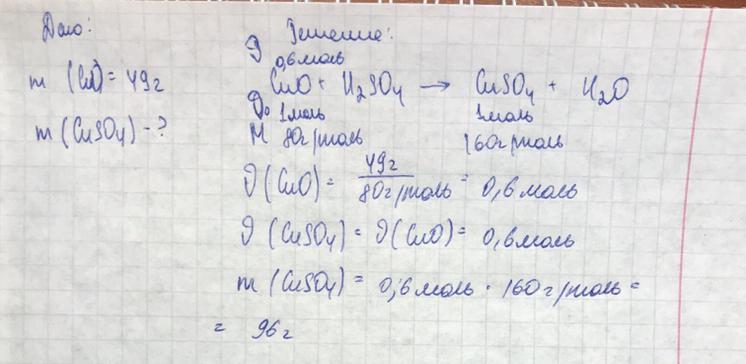 Дано:
Решение:
m (CuO) = 49г
m (CuSO4) - ?
ν 0,6моль
CuO + H2SO4 → CuSO4 + H2O
ν0 1моль 1моль
M 80г/моль 160г/моль
ν (CuO) = 49г / 80г/моль = 0,6моль
ν (CuSO4) = ν (CuO) = 0,6моль
m (CuSO4) = 0,6моль · 160г/моль =
= 96г